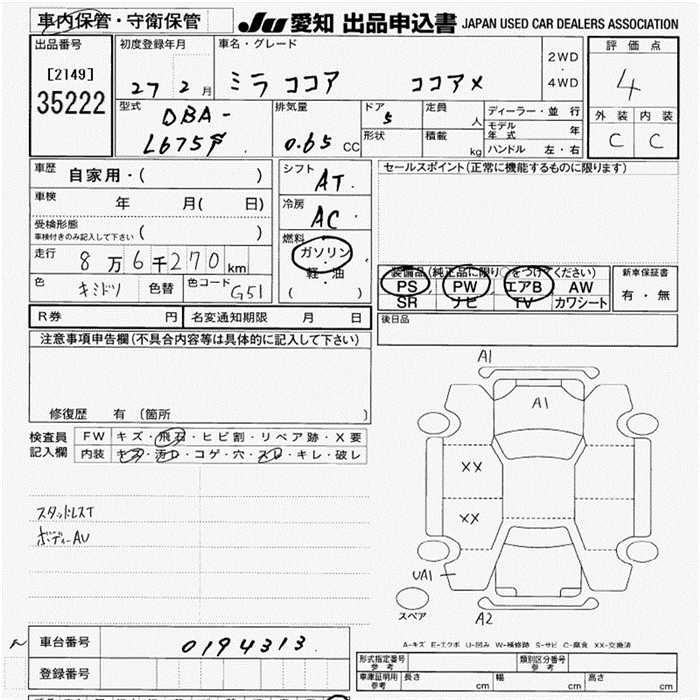 車内保管・守衛保管
JU 愛知 出品申込書 JAPAN USED CAR DEALERS ASSOCIATION
出品番号
[2149]
35222
初度登録年月
27 2 月
車名・グレード
ミラ ココア ココアX
2WD
・
4WD
評価点
4
外装 内装
C C
型式
DBA-
L675S
排気量
0.65 CC
ドア
5
形状
定員
人
積載
kg
ディーラー・並行
モデル年式 年
ハンドル 左・右
車歴 自家用・( )
車検 年 月( 日)
受検形態
車検付きのみ記入して下さい ( )
走行 8万6千270km
色 キミドリ 色替 色コード G51
シフト
AT
冷房
AC
燃料
ガソリン
・
軽・油
( )
セールスポイント(正常に機能するものに限ります)
装備品(純正品に限り○をつけてください)
PS PW エアB AW
SR ナビ TV カワシート
新車保証書
有・無
後日品
R券 円 名変通知期限 月 日
注意事項申告欄(不具合内容等は具体的に記入して下さい)
修復歴 有 (箇所 )
検査員記入欄
FW キズ・飛石・ヒビ割・リペア跡・X要
内装 キズ・汚レ・コゲ・穴・スレ・キレ・破レ
スタッドレスT
ボディーAU
A1
A1
XX
XX
UA1
スペア
A2
A-キズ E-エクボ U-凹み W-補修跡 S-サビ C-腐食 XX-交換済
車台番号 0194313
登録番号
形式指定番号
参考
類別区分番号
参考
車庫証明用
参考
長さ cm 幅 cm 高さ cm